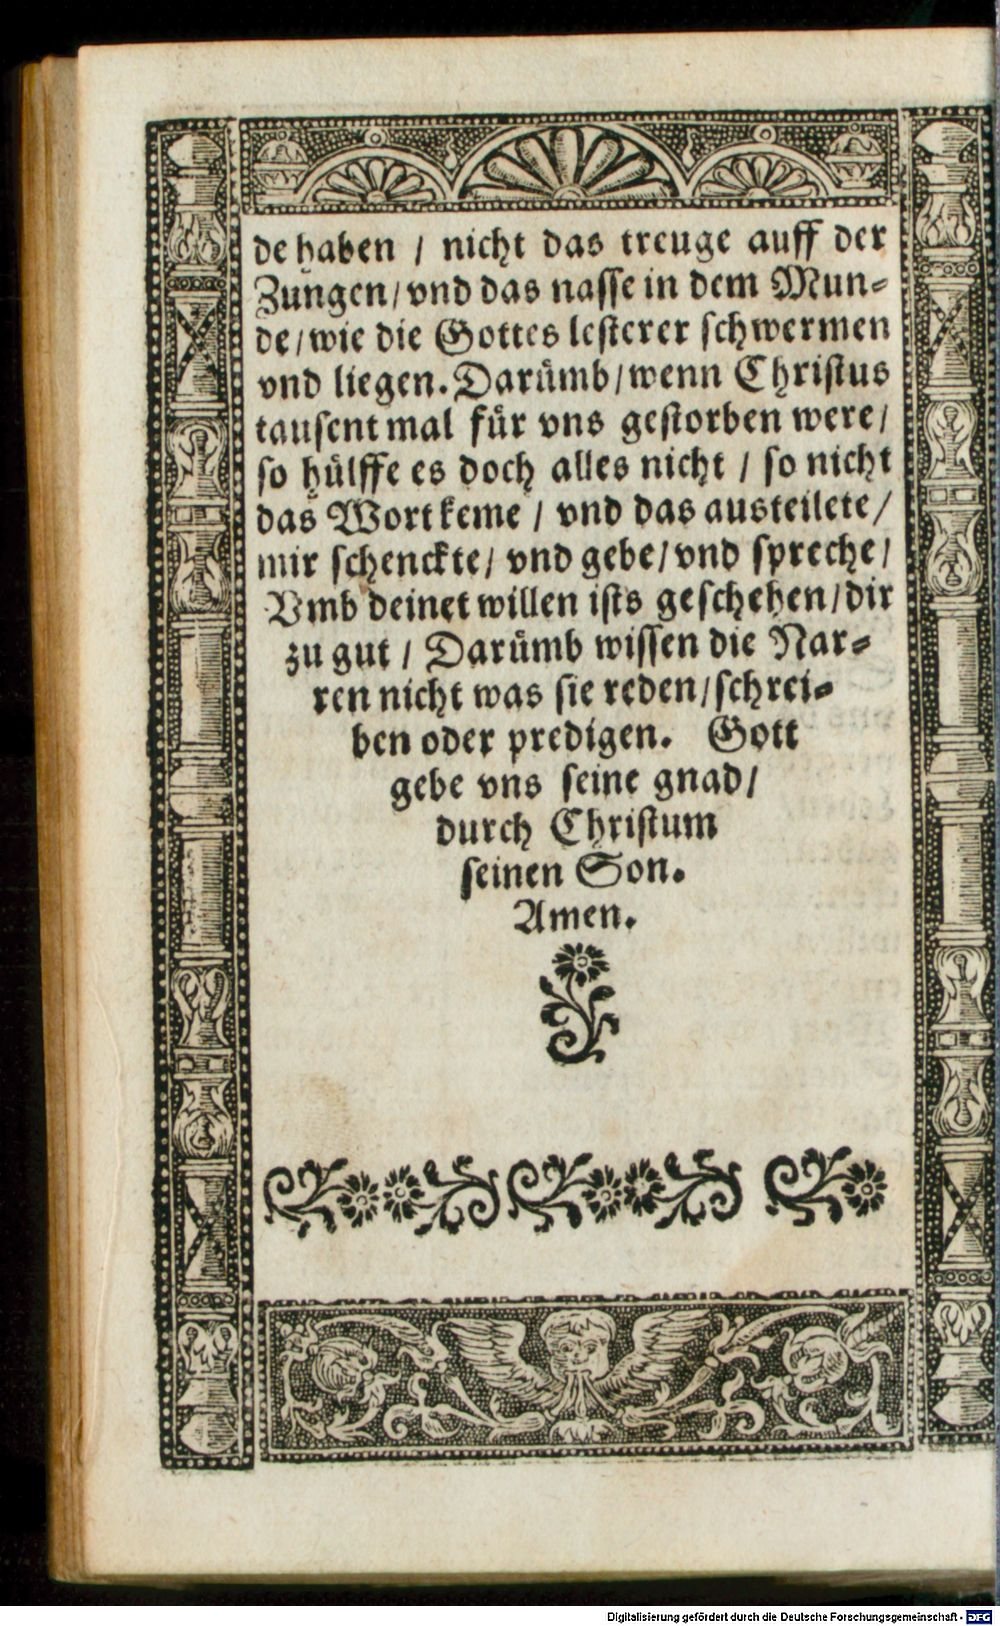 de haben / nicht das treuge auff der
Zungen / vnd das nasse in dem Mun⸗
de / wie die Gottes lesterer schwermen
vnd liegen. Darümb / wenn Christus
tausent mal für vns gestorben were /
so hülffe es doch alles nicht / so nicht
das Wort keme / vnd das austeilete /
mir schenckte / vnd gebe / vnd spreche /
Vmb deinet willen ists geschehen / dir
zu gut / Darümb wissen die Nar⸗
ren nicht was sie reden / schrei⸗
ben oder predigen. Gott
gebe vns seine gnad /
durch Christum
seinen Son.
Amen.
Digitalisierung gefördert durch die Deutsche Forschungsgemeinschaft - DFG